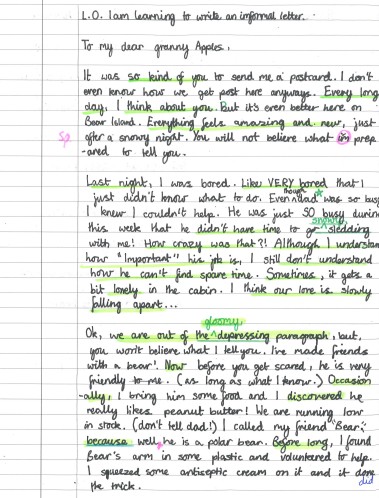 L.O. I am learning to write an informal letter.
To my dear granny Apples,
It was so kind of you to send me a postcard. I don't
even know how we get post here anyways. Every long
day, I think about you. But it's even better here on
Bear Island. Everything feels amazing and new, just
Sp after a snowy night. You will not believe what im prep
-ared to tell you.
Last night, I was bored. Like VERY bored that I
just didn't know what to do. Even though dad was so busy
I knew I couldn't help. He was just SO busy durin
this week that he didn't have time to go snowy sledding
with me! How crazy was that?! Although I understan
how "Important" his job is, I still don't understand
how he can't find spare time. Sometimes, it gets a
bit lonely in the cabin. I think our love is slowly
falling apart...
gloomy
Ok, we are out of the ^ depressing paragraph, but,
you won't believe what I tell you. I've made friends
with a bear! Now before you get scared, he is very
friendly to me. (as long as what I know.) Occasion
-ally, I bring him some food and I discovered he
really likes peanut butter! We are running low
in stock. (don't tell dad!) I called my friend "Bear,"
because well, he is a polar bear. Before long, I found
Bear's arm in some plastic and volunteered to help.
I squeezed some antiseptic cream on it and it done
did
the trick.